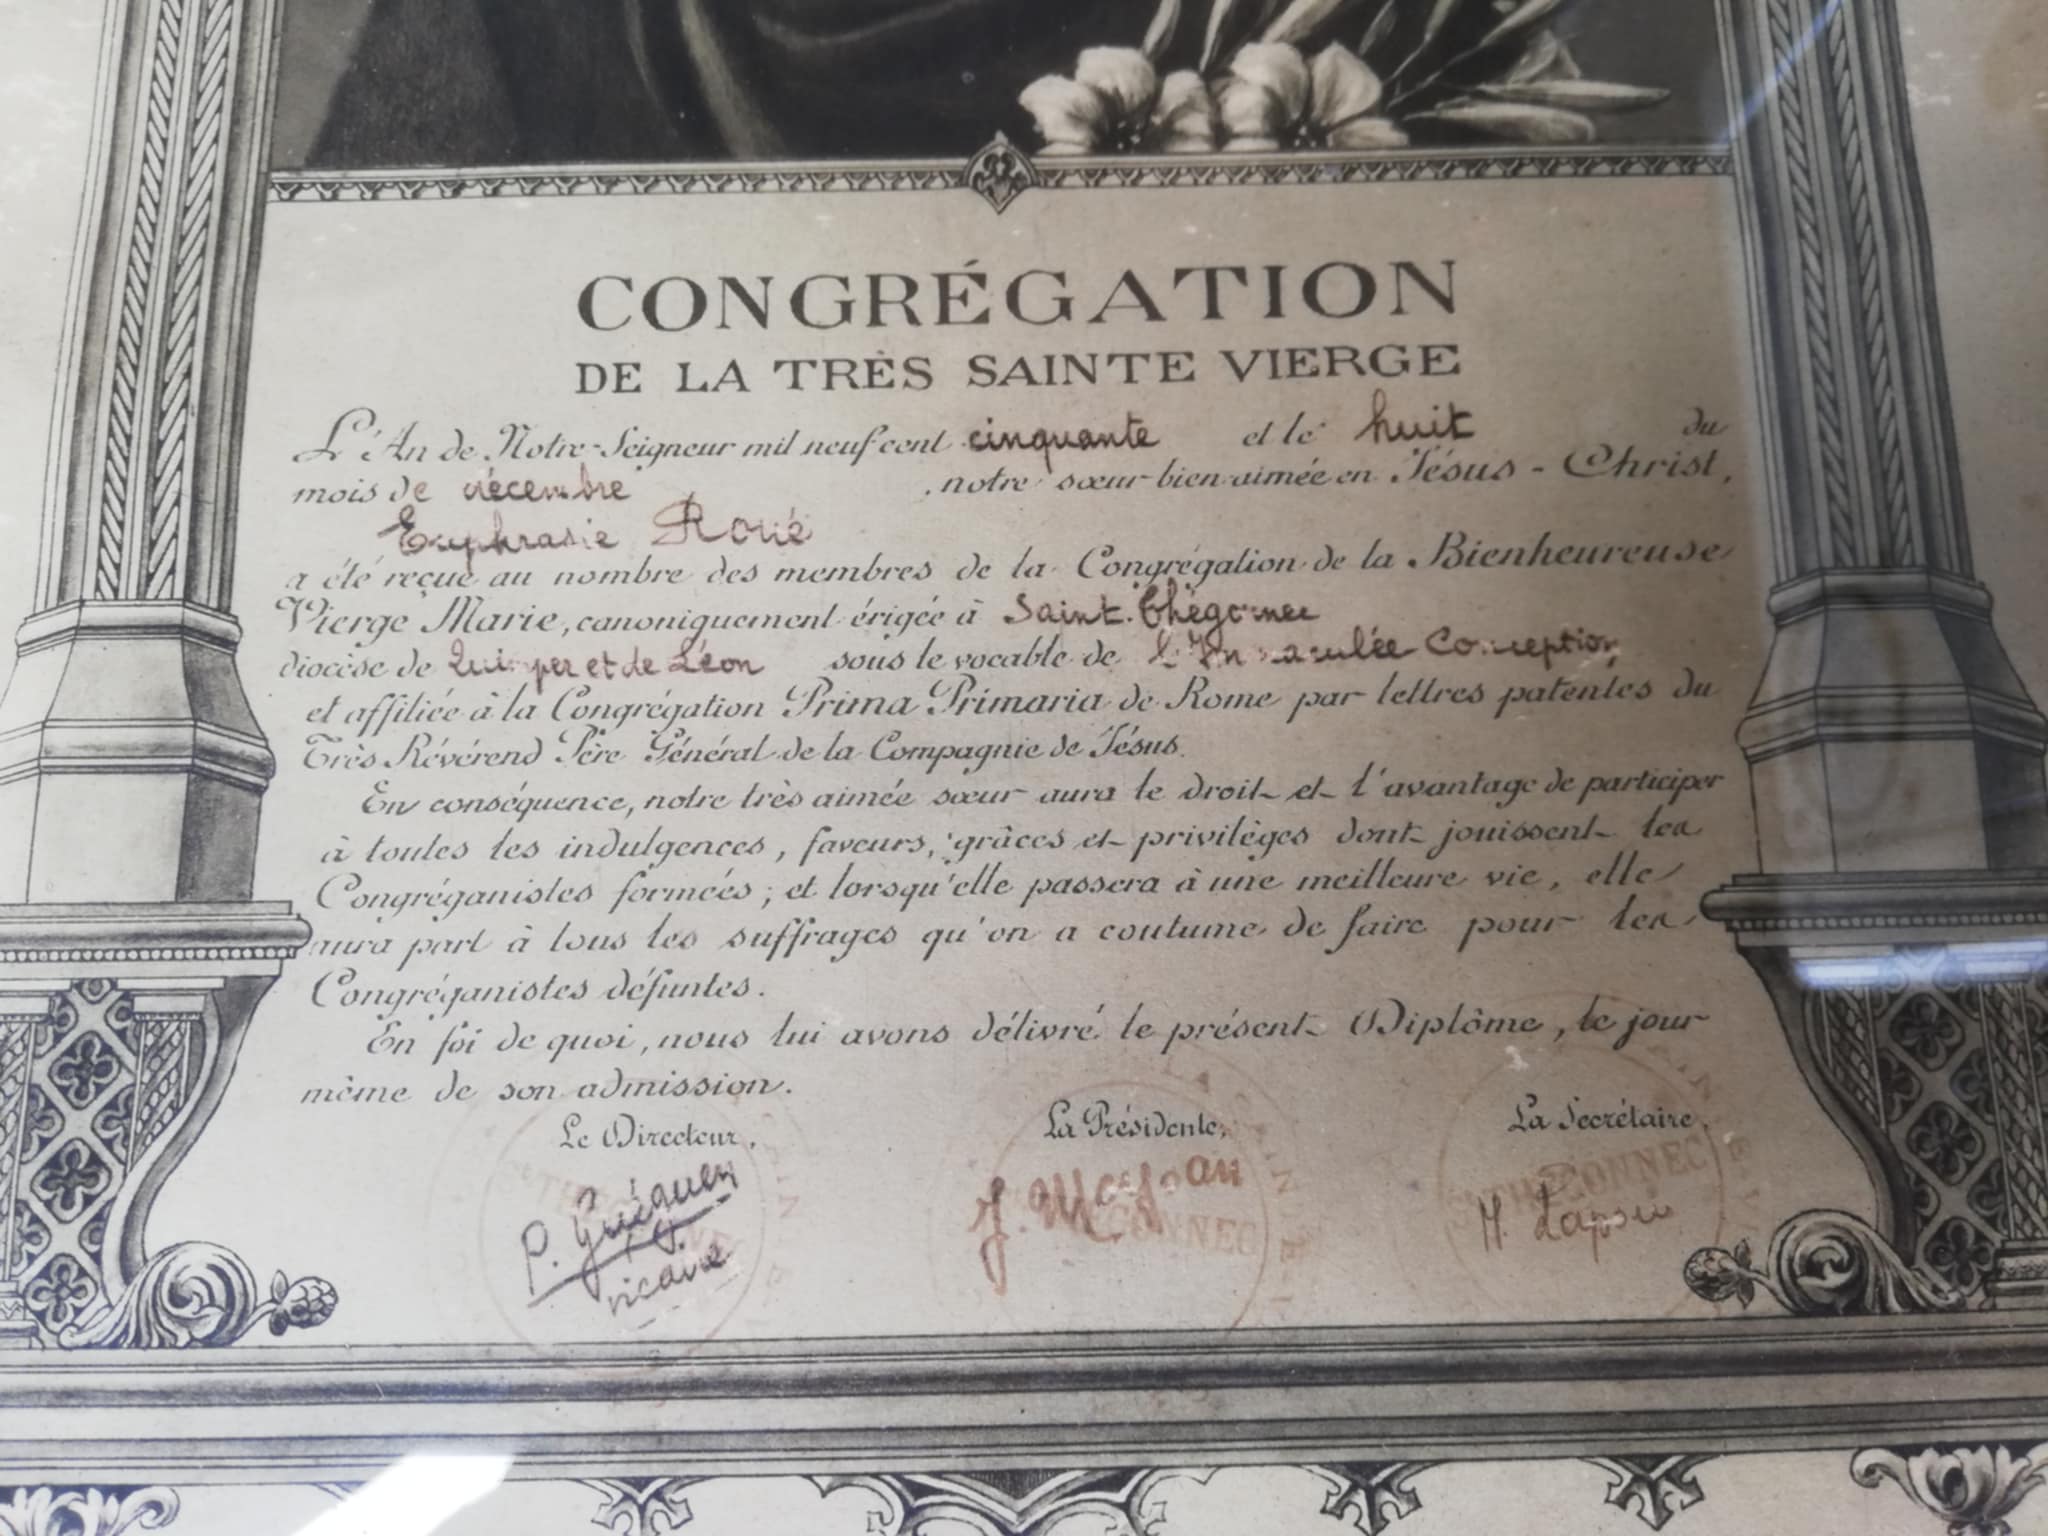 CONGRÉGATION
DE LA TRÈS SAINTE VIERGE
L'An de Notre-Seigneur mil neuf cent cinquante et le huit du
mois de décembre, notre sœur bien-aimée en Jésus-Christ,
Euphrasie Roué
a été reçue au nombre des membres de la Congrégation de la Bienheureuse
Vierge Marie, canoniquement érigée à Saint-Thégonnec
diocèse de Quimper et de Léon sous le vocable de l'Immaculée Conception
et affiliée à la Congrégation Prima Primaria de Rome par lettres patentes du
Très Révérend Père Général de la Compagnie de Jésus.
En conséquence, notre très aimée sœur aura le droit et l'avantage de participer
à toutes les indulgences, faveurs, grâces et privilèges dont jouissent les
Congréganistes formées; et lorsqu'elle passera à une meilleure vie, elle
aura part à tous les suffrages qu'on a coutume de faire pour les
Congréganistes défuntes.
En foi de quoi, nous lui avons délivré le présent Diplôme, le jour
même de son admission.
Le Directeur, La Présidente, La Secrétaire,
P. Guéguen J. Mazéan M.
vicaire